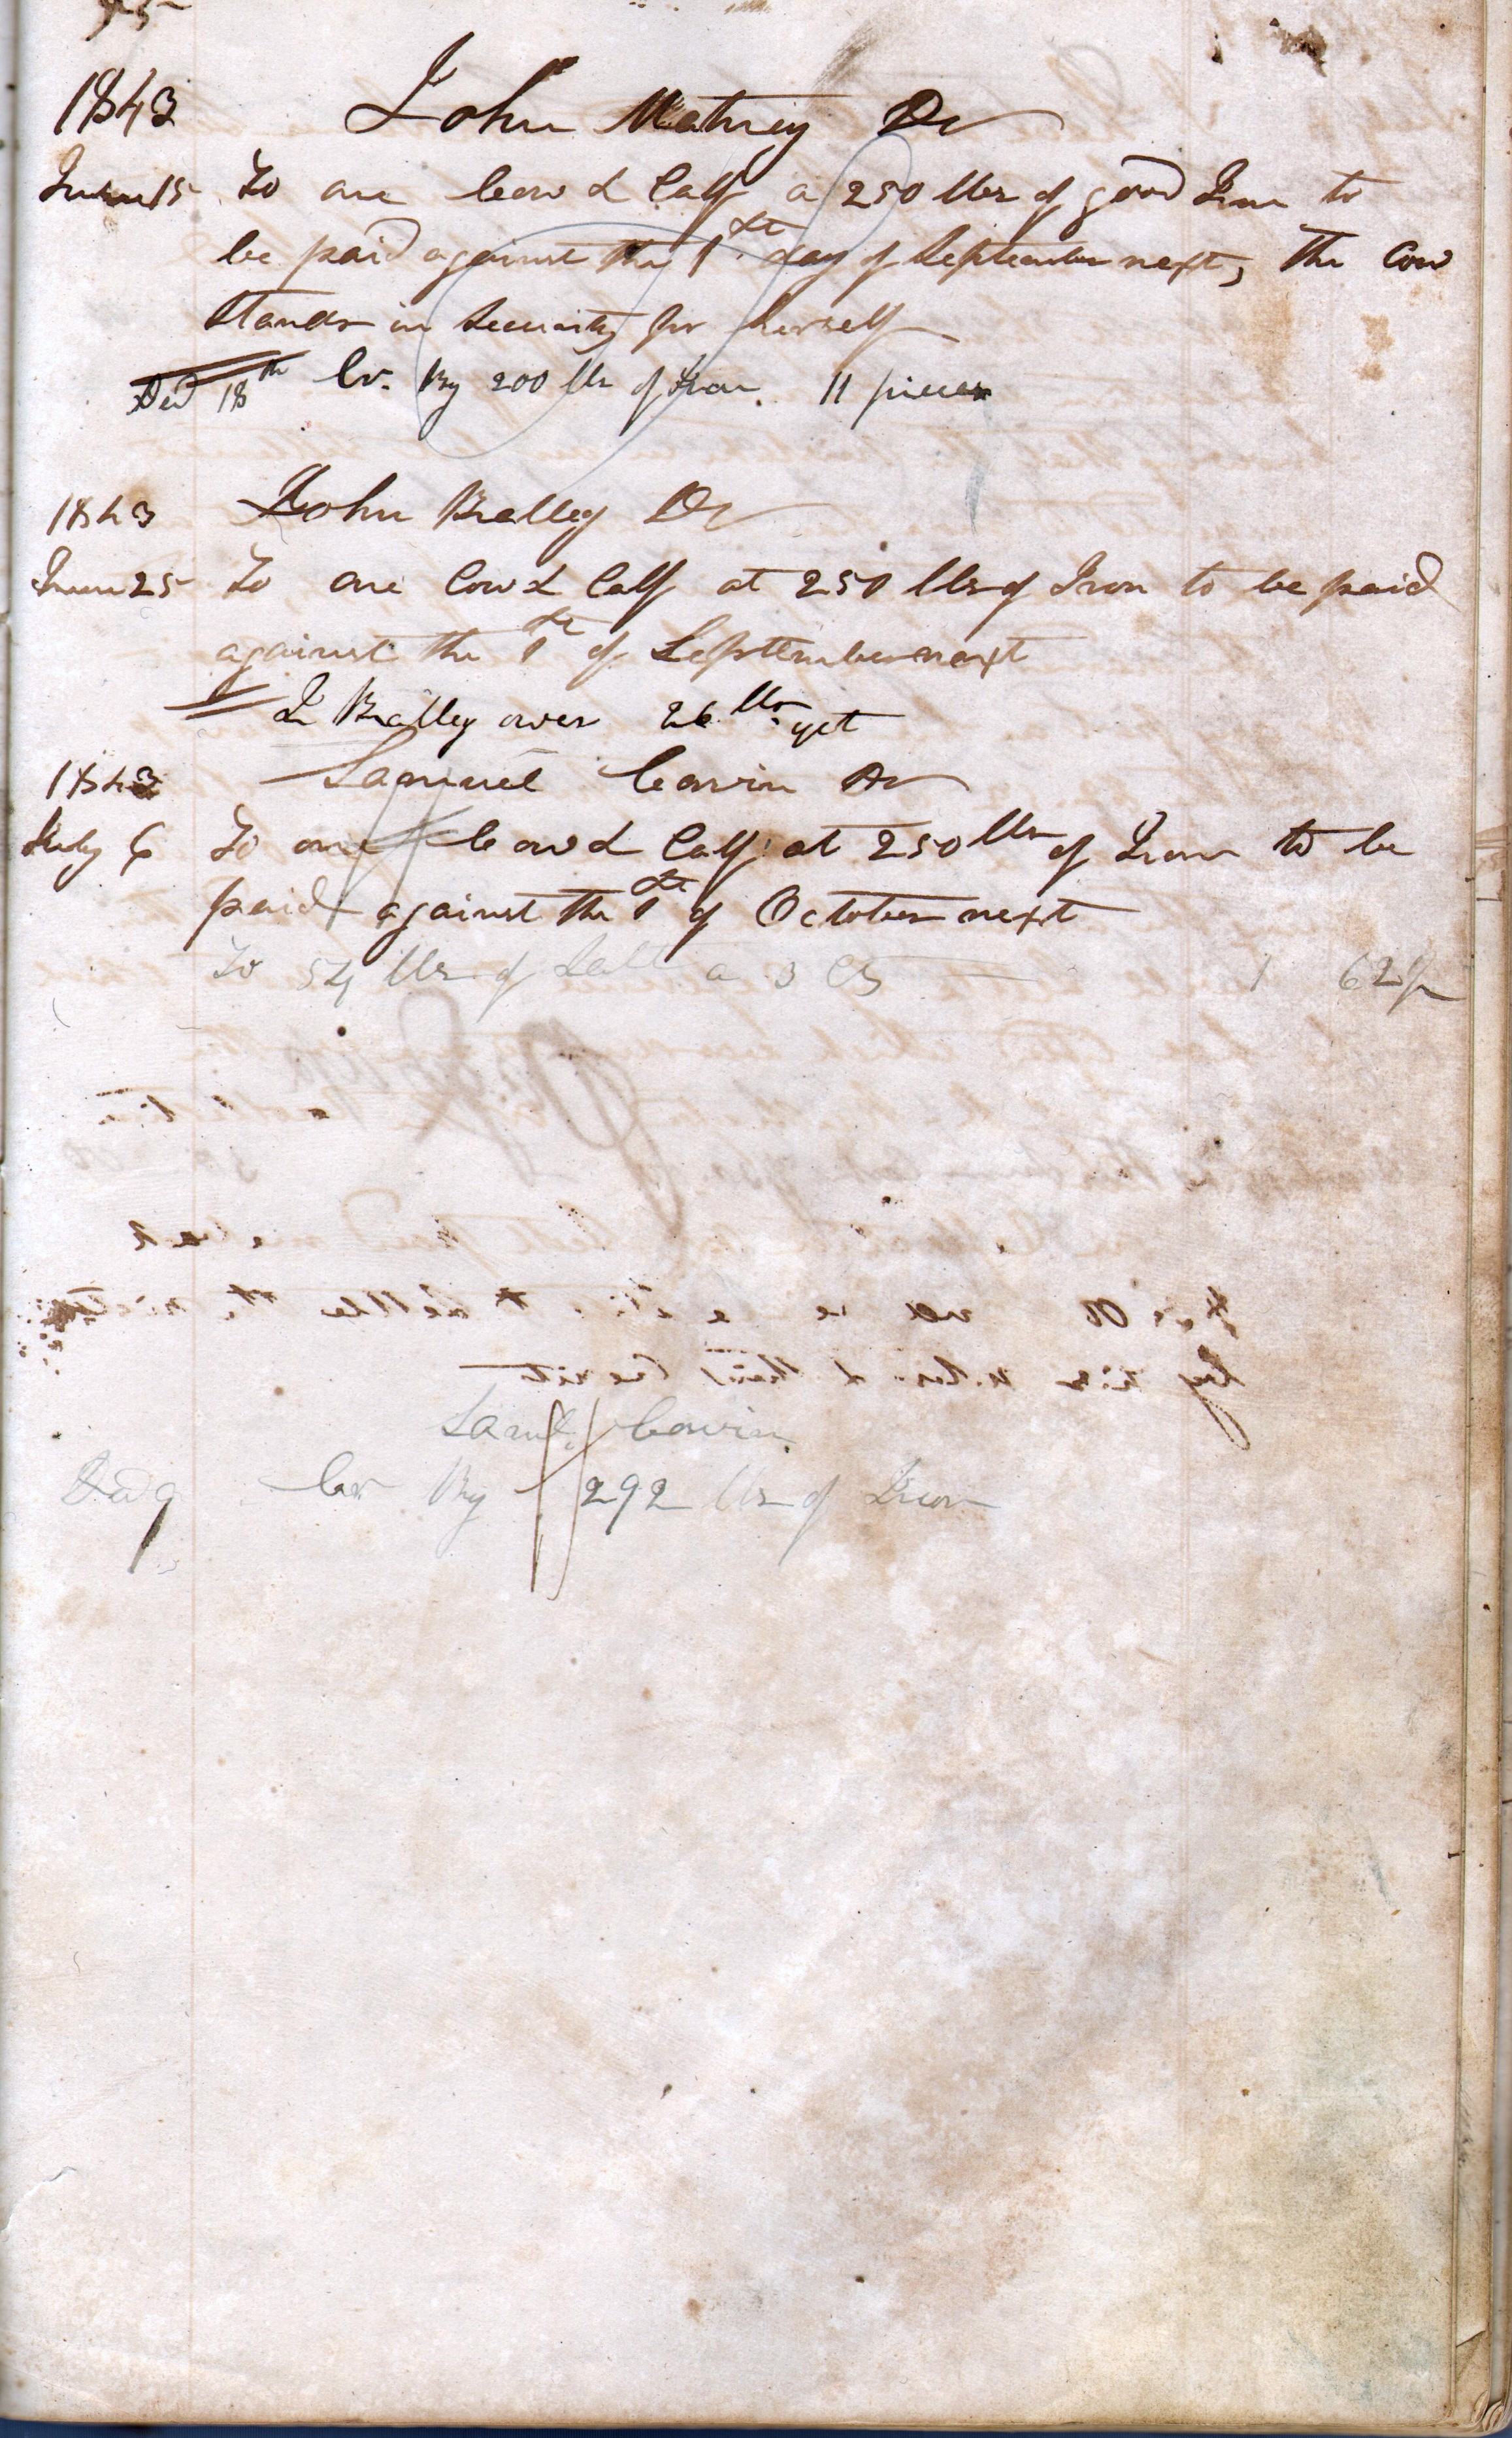 95
1843 John Matney Dr
June 15 To one Cow & Calf a 250 lbs of good Iron to
be paid against the 1st day of September next, The Cow
Stands in Security for herself
Decd 18th Cr. By 200 lbs of Iron. 11 pieces
1843 John Balley Dr
June 25 To one Cow & Calf at 250 lbs of Iron to be paid
against the 1st of September next
J Balley owes 26 lbs. yet
1843 Samuel Cowin Dr
July 6 To one Cow & Calf at 250 lbs of Iron to be
paid against the 1st of October next
To 54 lbs of Salt a 3 Cts 1 62
Saml. Cowin
9 Cr By 292 lbs of Iron